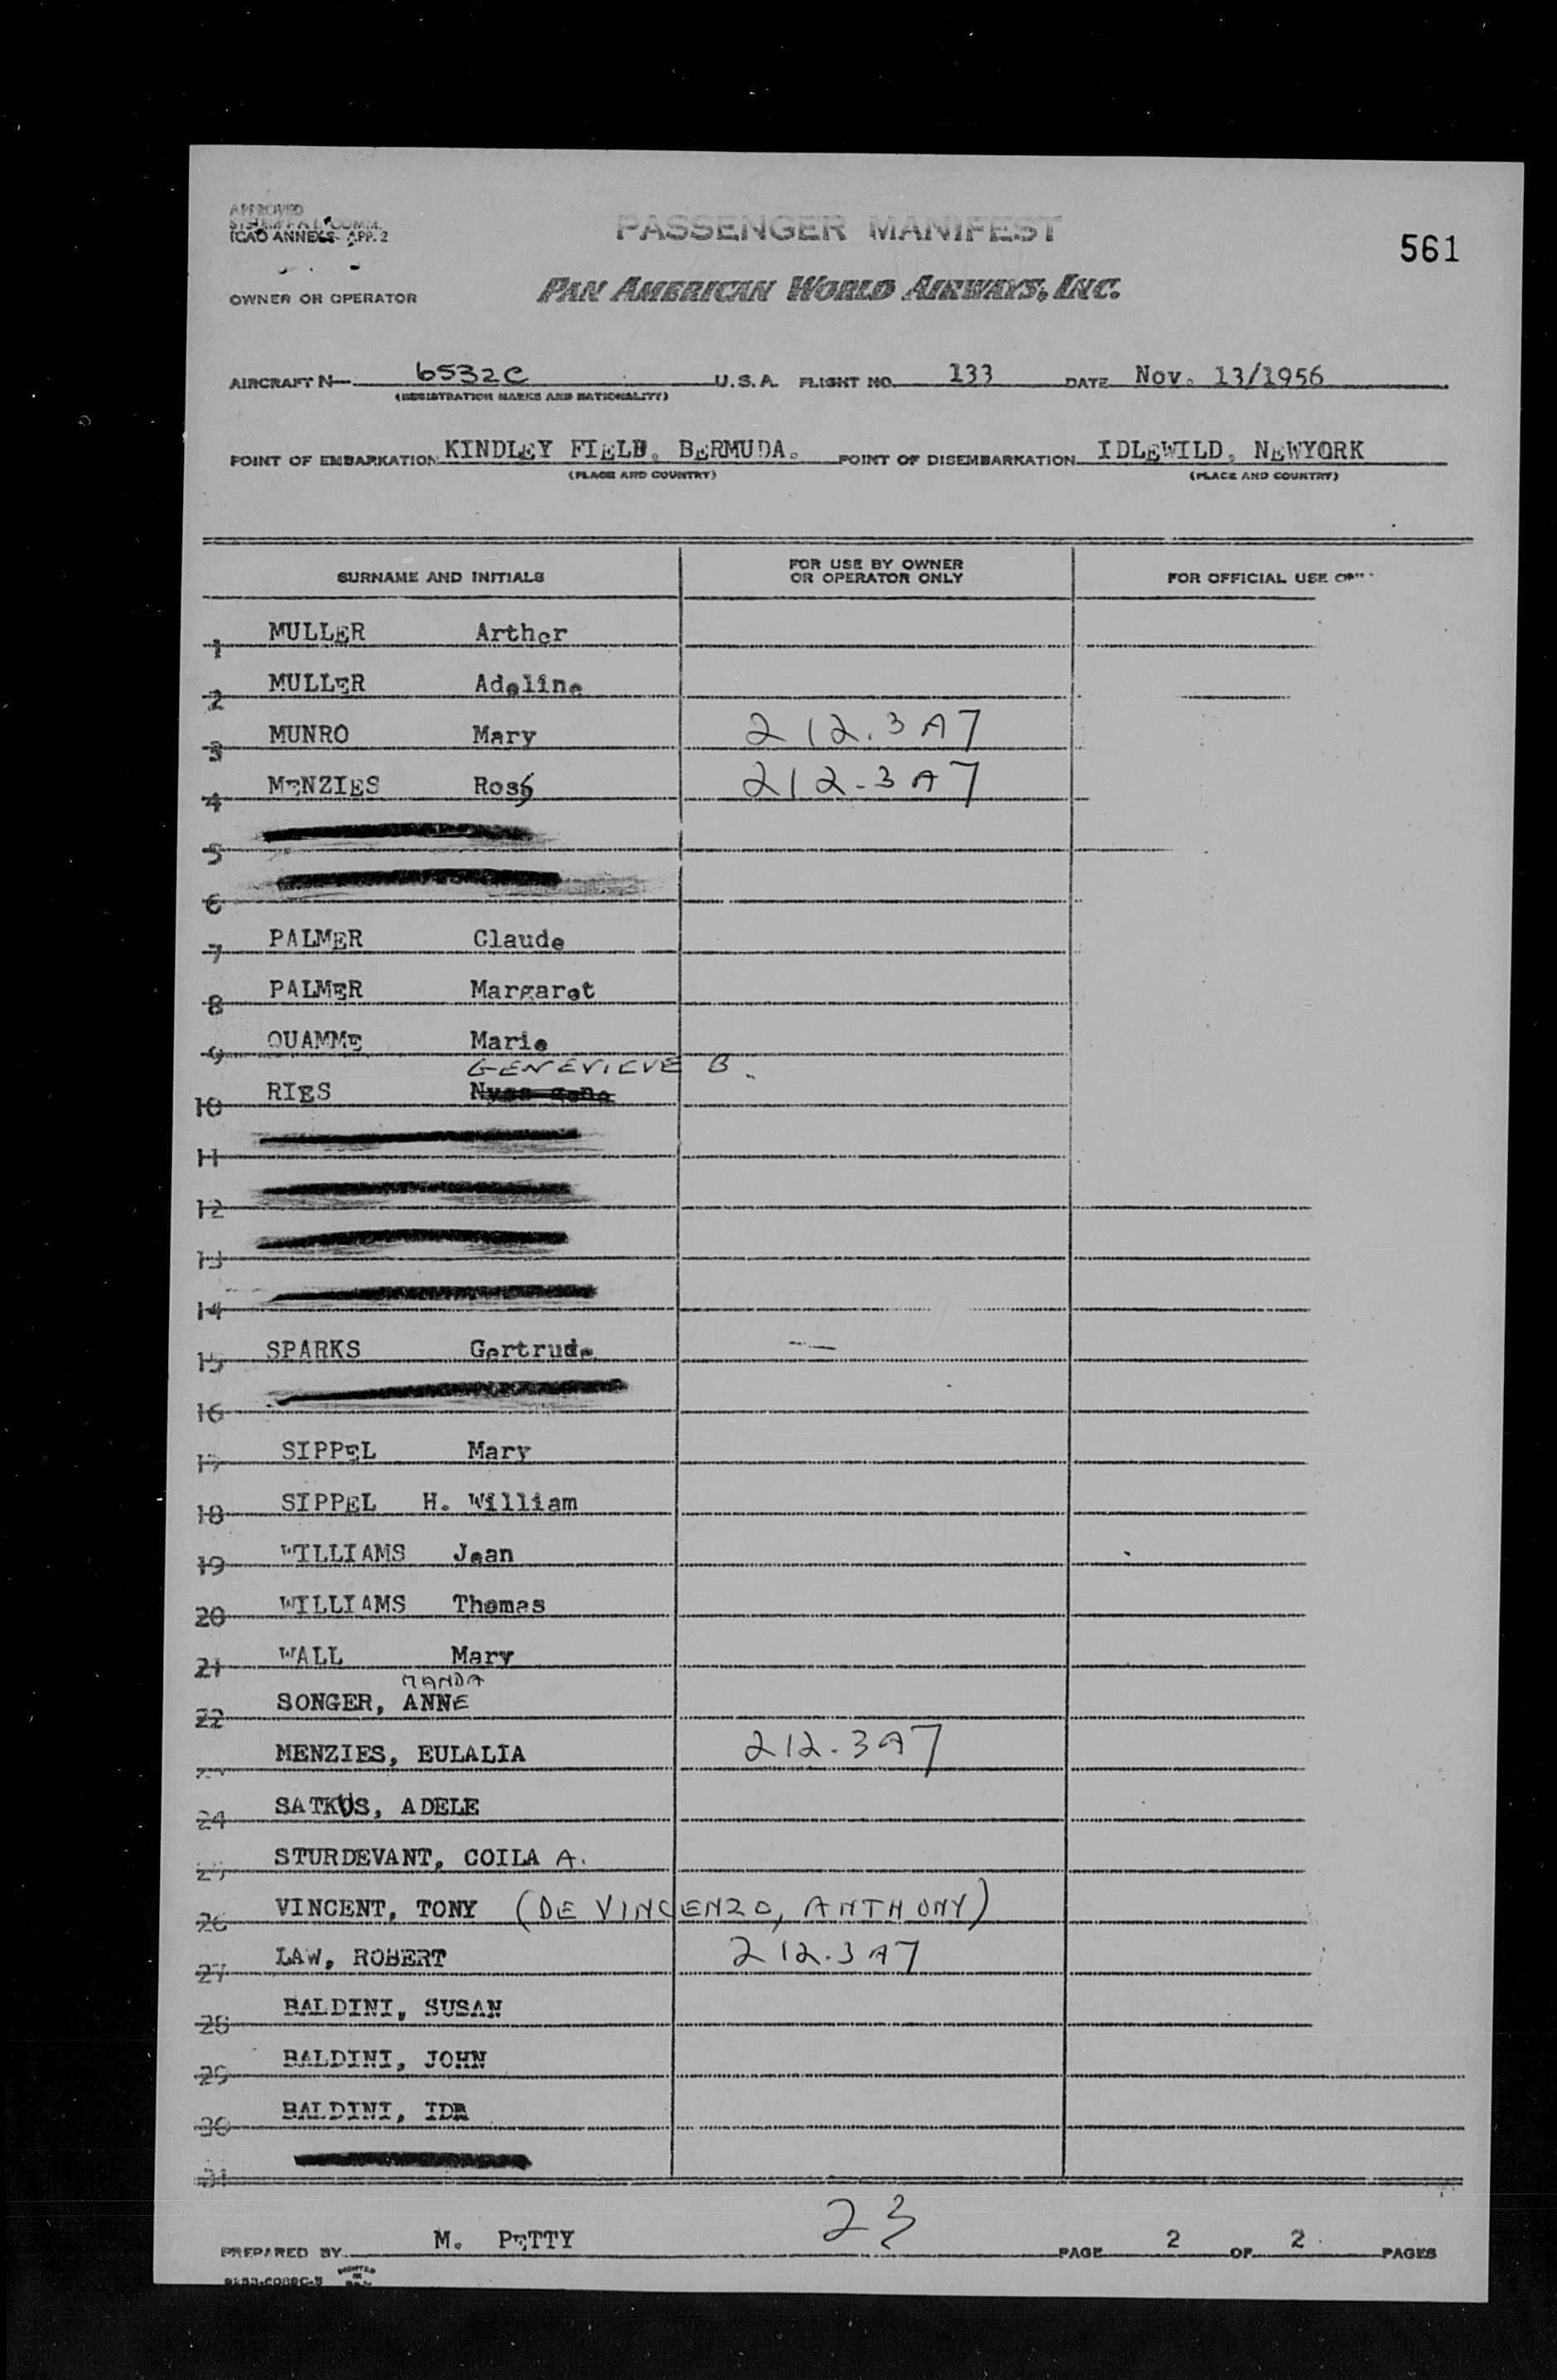 APPROVED
ICAO ANNEX 9- APP. 2
PASSENGER MANIFEST
561
OWNER OR OPERATOR
PAN AMERICAN WORLD AIRWAYS, INC.
AIRCRAFT N 6532C U.S.A. FLIGHT NO. 133 DATE Nov. 13/1956
(REGISTRATION MARKS AND NATIONALITY)
POINT OF EMBARKATION KINDLEY FIELD, BERMUDA. POINT OF DISEMBARKATION IDLEWILD, NEWYORK
(PLACE AND COUNTRY) (PLACE AND COUNTRY)
SURNAME AND INITIALS FOR USE BY OWNER OR OPERATOR ONLY FOR OFFICIAL USE
1 MULLER Arther
2 MULLER Adeline
3 MUNRO Mary 212.3A7
4 MENZIES Ross 212-3A7
5
6
7 PALMER Claude
8 PALMER Margaret
9 QUAMME Marie
GENEVIEVE B.
10 RIES
11
12
13
14
15 SPARKS Gertrude
16
17 SIPPEL Mary
18 SIPPEL H. William
19 WILLIAMS Jean
20 WILLIAMS Thomas
21 WALL Mary
MANDA
22 SONGER, ANNE
MENZIES, EULALIA 212-3A7
24 SATKUS, ADELE
25 STURDEVANT, COILA A.
26 VINCENT, TONY (DE VINCENZO, ANTHONY)
27 LAW, ROBERT 212.3A7
28 BALDINI, SUSAN
29 BALDINI, JOHN
30 BALDINI, IDA
31
23
PREPARED BY M. PETTY PAGE 2 OF 2 PAGES